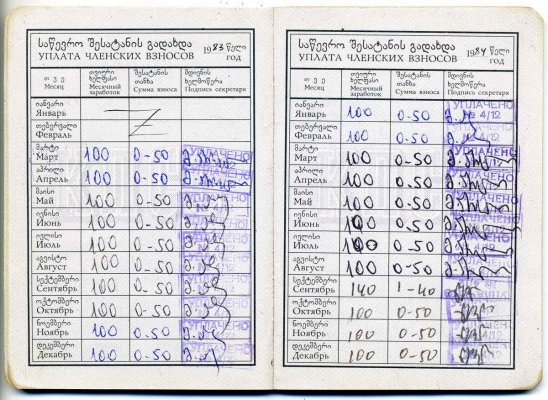 საწევრო შესატანის გადახდა
УПЛАТА ЧЛЕНСКИХ ВЗНОСОВ
1983 წელი
год
თვე
Месяц
თვიური ხელფასი
Месячный заработок
შესატანის თანხა
Сумма взноса
მდივნის ხელმოწერა
Подпись секретаря
იანვარი
Январь
თებერვალი
Февраль
მარტი
Март 100 0-50 УПЛАЧЕНО
აპრილი
Апрель 100 0-50
მაისი
Май 100 0-50
ივნისი
Июнь 100 0-50
ივლისი
Июль 100 0-50
აგვისტო
Август 100 0-50
სექტემბერი
Сентябрь 100 0-50
ოქტომბერი
Октябрь 100 0-50
ნოემბერი
Ноябрь 100 0-50
დეკემბერი
Декабрь 100 0-50
საწევრო შესატანის გადახდა
УПЛАТА ЧЛЕНСКИХ ВЗНОСОВ
1984 წელი
год
თვე
Месяц
თვიური ხელფასი
Месячный заработок
შესატანის თანხა
Сумма взноса
მდივნის ხელმოწერა
Подпись секретаря
იანვარი УПЛАЧЕНО
Январь 100 0-50 4/12
თებერვალი
Февраль 100 0-50
მარტი УПЛАЧЕНО
Март 100 0-50
აპრილი
Апрель 100 0-50
მაისი
Май 100 0-50
ივნისი
Июнь 100 0-50
ივლისი
Июль 100 0-50
აგვისტო
Август 100 0-50
სექტემბერი
Сентябрь 140 1-40
ოქტომბერი
Октябрь 100 0-50
ნოემბერი
Ноябрь 100 0-50
დეკემბერი
Декабрь 100 0-50